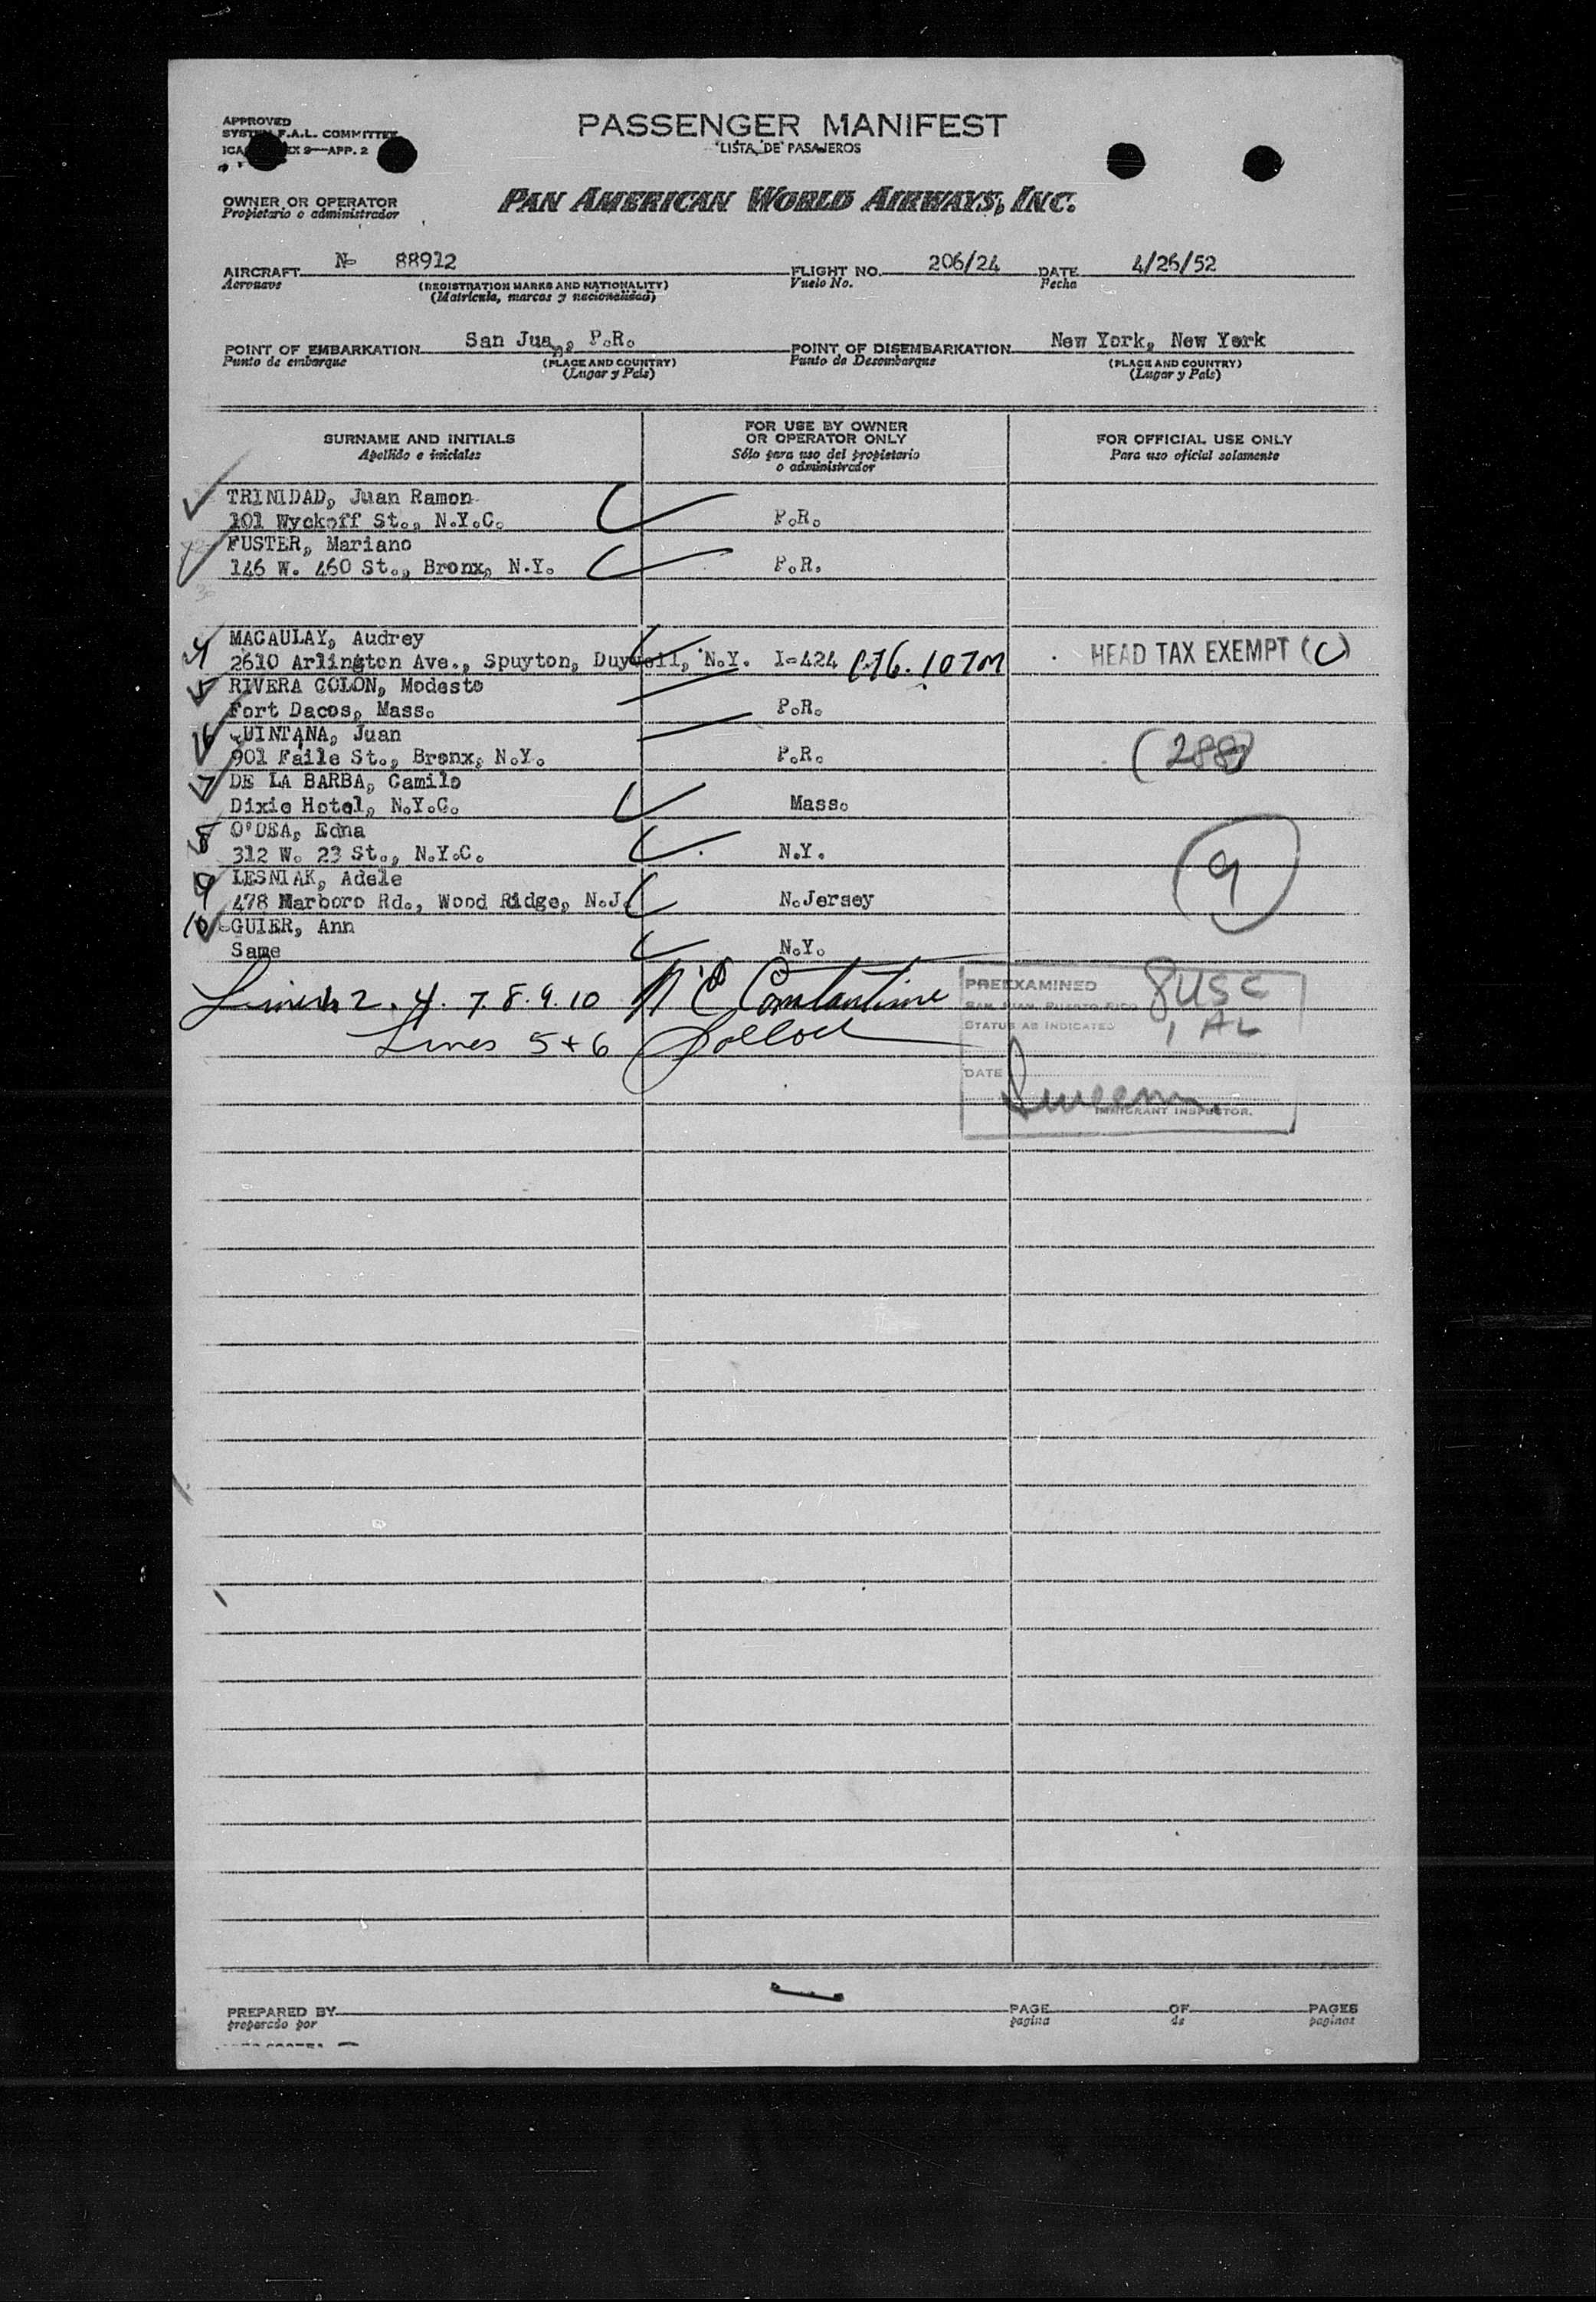 APPROVED
SYSTEM F.A.L. COMMITTEE
ICA EX 9—APP. 2
PASSENGER MANIFEST
LISTA DE PASAJEROS
OWNER OR OPERATOR
Propietario o administrador
PAN AMERICAN WORLD AIRWAYS, INC.
AIRCRAFT N- 88912 FLIGHT NO. 206/24 DATE 4/26/52
Aeronave (REGISTRATION MARKS AND NATIONALITY) Vuelo No. Fecha
(Matricula, marcas y nacionalidad)
POINT OF EMBARKATION San Juan, P.R. POINT OF DISEMBARKATION New York, New York
Punto de embarque (PLACE AND COUNTRY) Punto de Desembarque (PLACE AND COUNTRY)
(Lugar y País) (Lugar y País)
SURNAME AND INITIALS FOR USE BY OWNER OR OPERATOR ONLY FOR OFFICIAL USE ONLY
Apellido e iniciales Sólo para uso del propietario o administrador Para uso oficial solamente
TRINIDAD, Juan Ramon
101 Wyckoff St., N.Y.C. P.R.
FUSTER, Mariano
146 W. 460 St., Bronx, N.Y. P.R.
4 MACAULAY, Audrey
2610 Arlington Ave., Spuyton, Duyvoil, N.Y. I-424 HEAD TAX EXEMPT (C)
5 RIVERA COLON, Modesto
Fort Dacos, Mass. P.R.
6 QUINTANA, Juan
901 Faile St., Bronx, N.Y. P.R. (288)
7 DE LA BARBA, Camilo
Dixie Hotel, N.Y.C. Mass.
8 O'DEA, Edna
312 W. 23 St., N.Y.C. N.Y. 9
9 LESNIAK, Adele
478 Marboro Rd., Wood Ridge, N.J. N.Jersey
10 GUIER, Ann
Same N.Y.
Lines 1. 2. 4. 7. 8. 9. 10 Constantine
Lines 5 + 6
PREEXAMINED 8 USC
SAN JUAN, PUERTO RICO
STATUS AS INDICATED 1 AL
DATE
IMMIGRANT INSPECTOR.
PREPARED BY PAGE OF PAGES
preparado por pagina de paginas